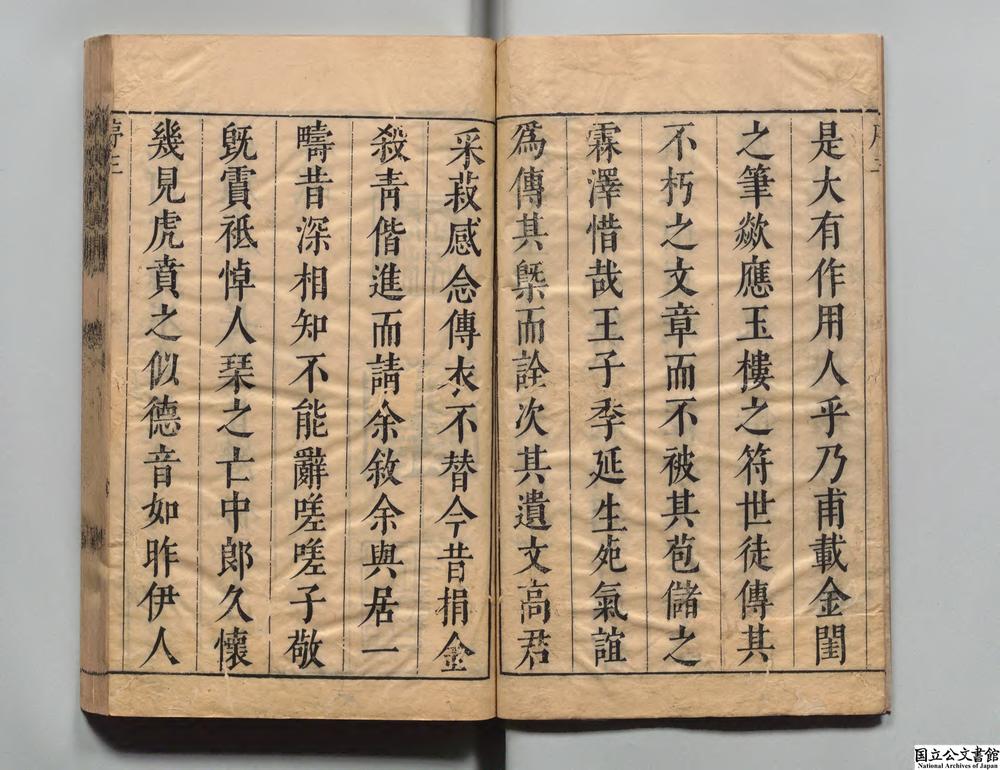 是大有作用人乎乃甫載金閨
之筆歘應玉樓之符世徒傳其
不朽之文章而不被其苞儲之
霖澤惜哉王子季延生死氣誼
為傳其槩而詮次其遺文高君
采菽感念傳衣不替今昔捐金
殺青偕進而請余敘余與居一
疇昔深相知不能辭嗟嗟子敬
既賈袛悼人琹之亡中郎久懷
幾見虎賁之似德音如昨伊人
序三
国立公文書館
National Archives of Japan